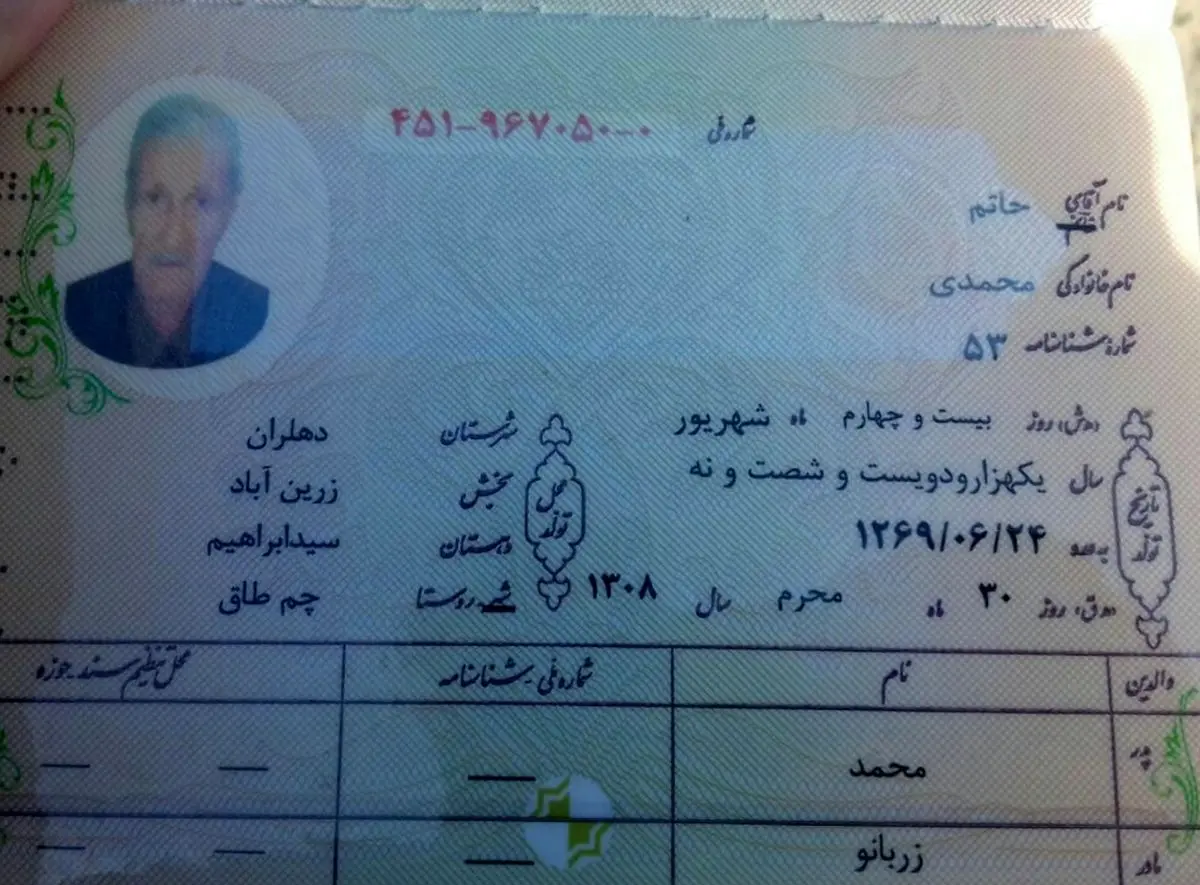 شماره ملی ۴۵۱-۹۶۷۰۵۰-۰
نام آقای خانم حاتم
نام خانوادگی محمدی
شماره شناسنامه ۵۳
تاریخ تولد
(ه‍.ش) روز بیست و چهارم ماه شهریور
سال یکهزارودویست و شصت و نه
به عدد ۱۲۶۹/۰۶/۲۴
(ه‍.ق) روز ۳۰ ماه محرم سال ۱۳۰۸
محل تولد
شهرستان دهلران
بخش زرین آباد
دهستان سیدابراهیم
شهر-روستا چم طاق
والدین نام شماره ملی-شناسنامه محل تنظیم سند-حوزه
پدر محمد — — —
مادر زربانو — — —